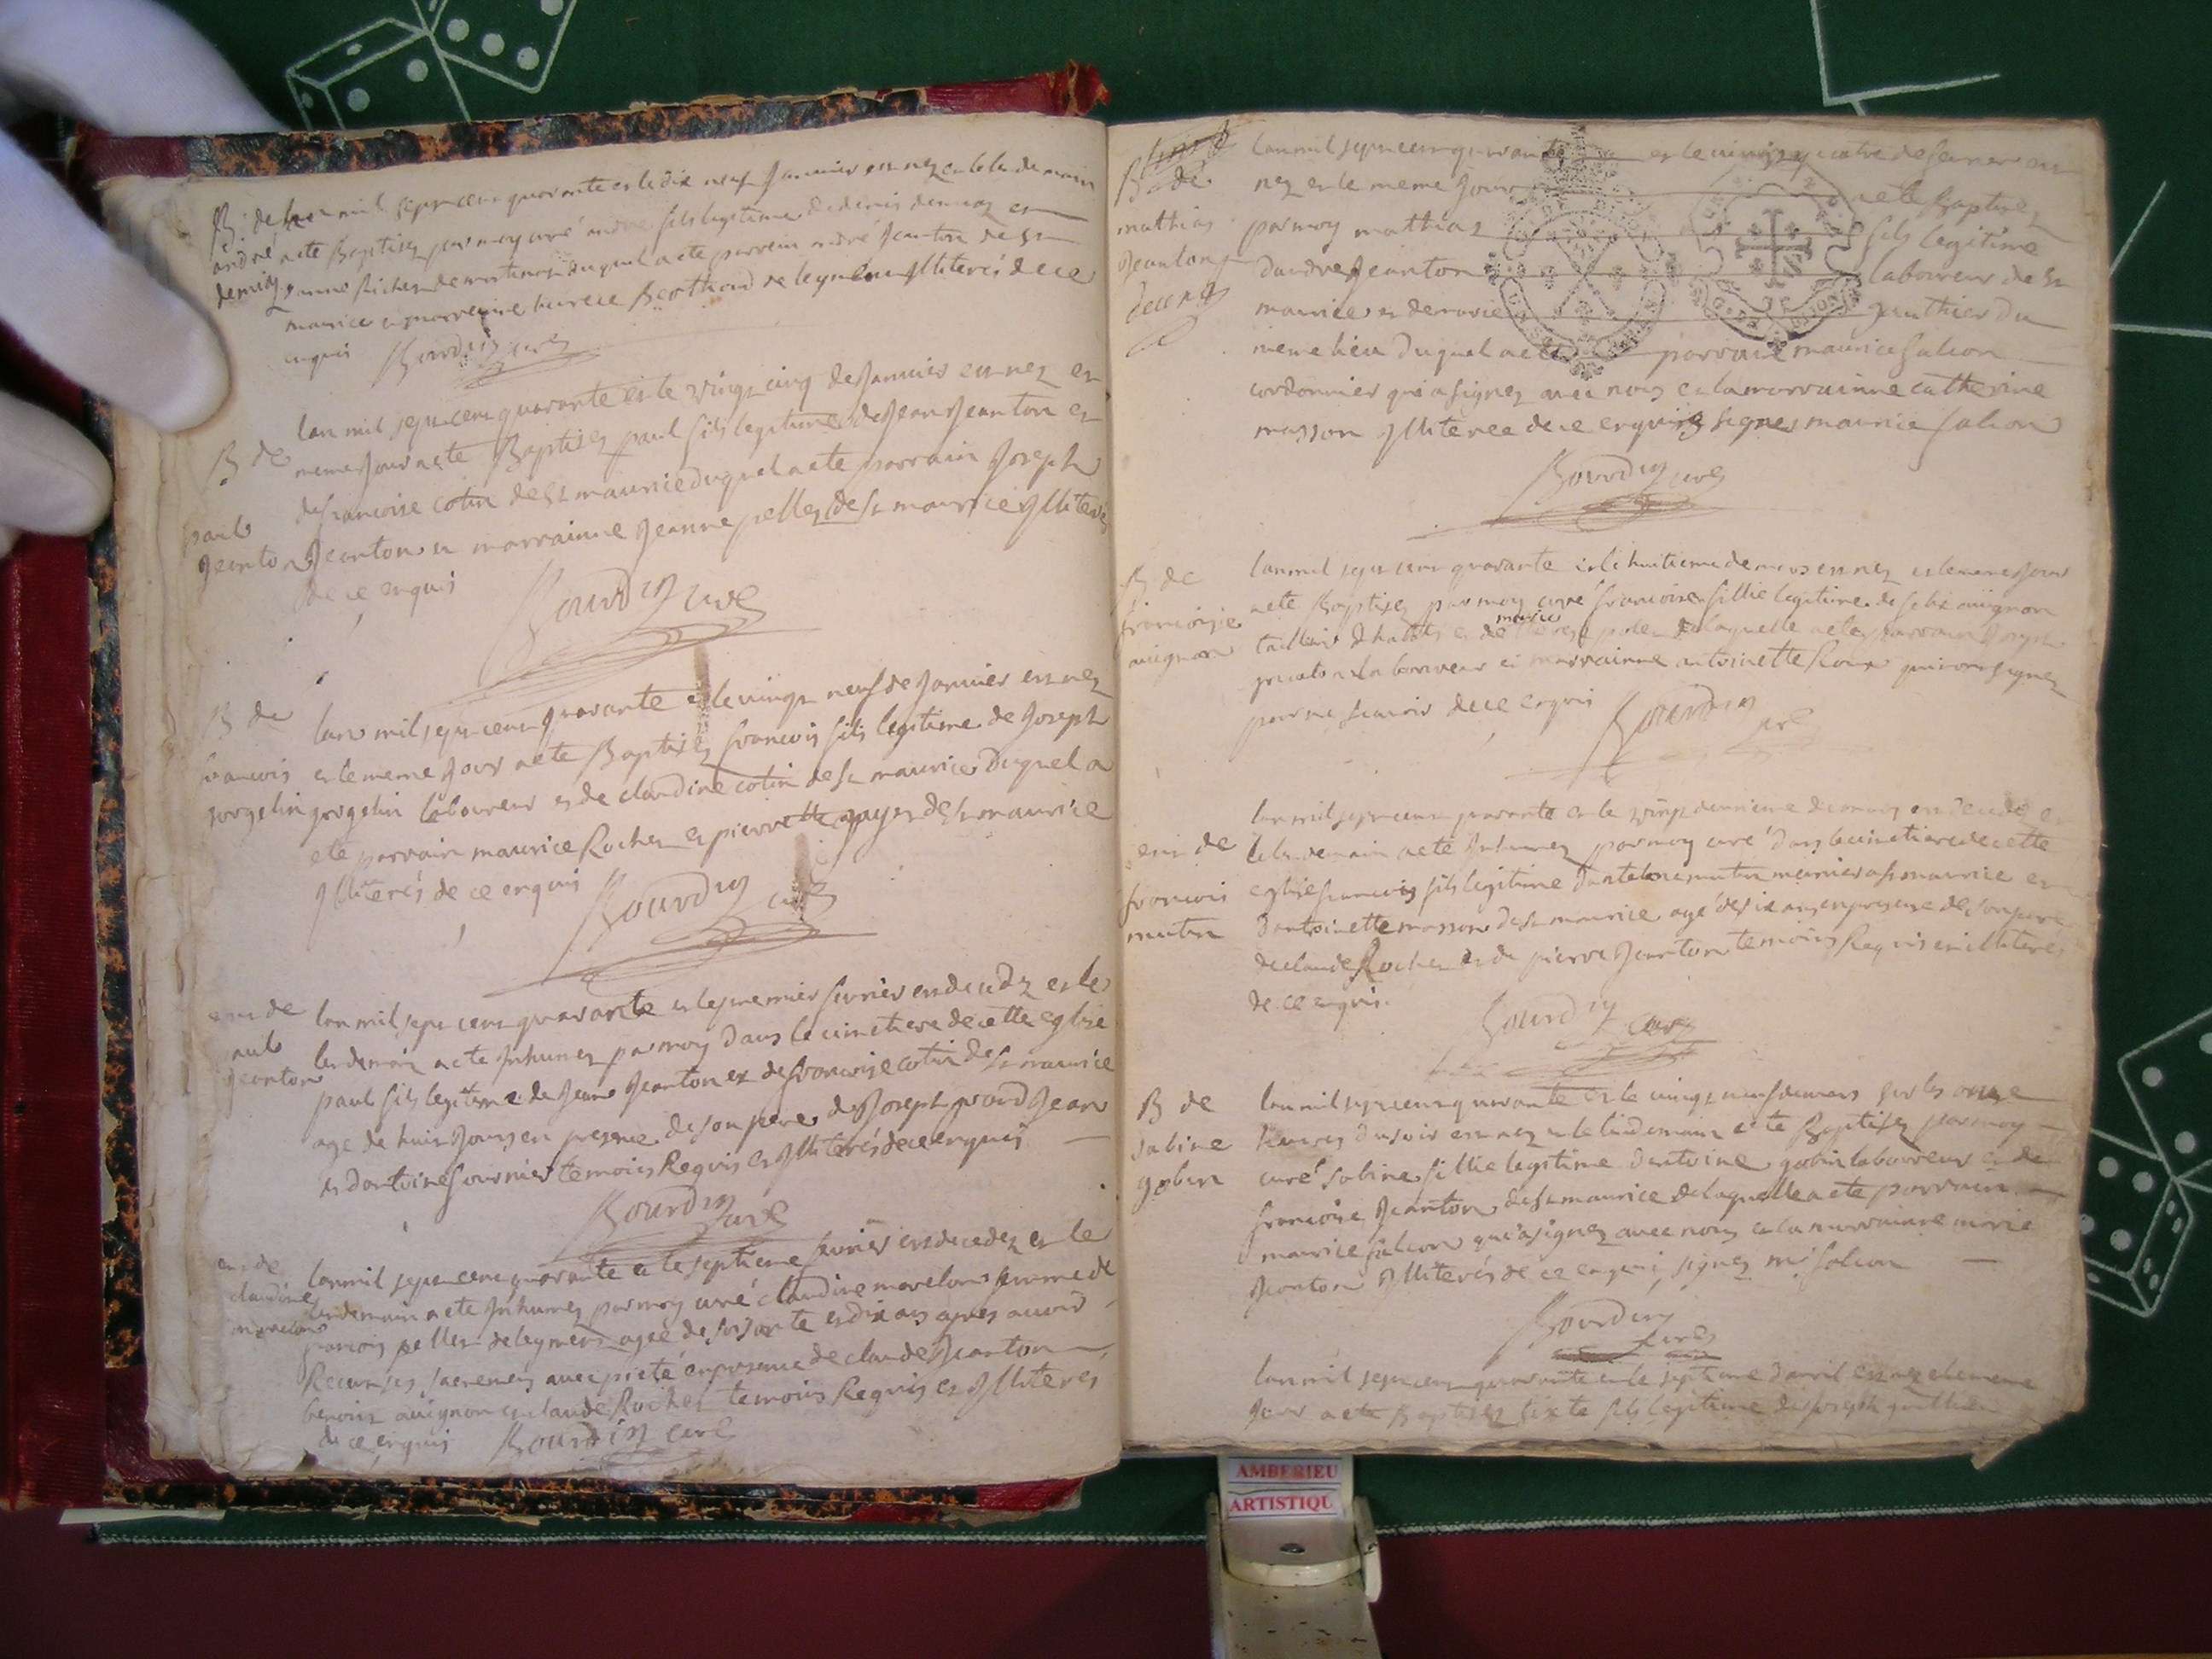 B. de
andré
lan mil sept cent quarante et le dix neuf Janvier est nez et le lendemain
a ete Baptisez par moy curé andré fils legitime de denis et
duquel a ete parrain andré Jeanton de st
maurice et marreine Berthod de leyment Illiterés de ce
enquis Bourdin curé
B de
paul
Jeanton
lan mil sept cent quarante et le vingt cinq de Janvier est nez et
meme Jour a ete Baptisez paul fils legitime de Jean Jeanton et
de francoise cotin de st maurice duquel a ete parrain Joseph
Jeanton et marrainne Jeanne pellez de st maurice Illiterés
de ce enquis
Bourdin curé
B de
francois
gorgelin
lan mil sept cent quarante et le vingt neuf de Janvier est nez
et le meme Jour a ete Baptisez francois fils legitime de Joseph
gorgelin laboureur et de claudine cotin de st maurice duquel a
ete parrain maurice Rochet et pierrette de st maurice
Illiterés de ce enquis
Bourdin curé
ent de
paul
Jeanton
lan mil sept cent quarante et le premier fevrier est decedz et le
lendemain a ete Inhumez par moy dans le cimetiere de cette eglise
paul fils legitime de Jean Jeanton et de francoise cotin de st maurice
age de huit Jours en presence de son pere de Joseph Jean
et dantoine fournier temoins Requis et Illiterés de ce enquis
Bourdin curé
ent de
claudine
morelon
lan mil sept cent quarante et le septieme fevrier est decedez et le
lendemain a ete Inhumez par moy curé claudine morelon femme de
francois pellet de leyment agée de soisante et dix ans apres avoir
Recu ses sacremens avec pieté en presence de claude Jeanton
benoist avignon et claude Rochet temoins Requis et Illiteres
de ce enquis Bourdin curé
B de
mathias
Jeanton
lan mil sept cent quarante et le vingt quatre de fevrier est
nez et le meme Jour a ete Baptisez
par moy mathias fils legitime
dandré Jeanton laboureur de st
maurice et de marie gauthier du
meme lieu duquel a ete parrain maurice falcon
cordonnier qui a signez avec nous et la marrainne catherine
masson Illiterée de ce enquis signes maurice falcon
Bourdin curé
B de
francoise
avignon
lan mil sept cent quarante et le huitieme de mars est nez et le meme Jour
a ete Baptisez par moy curé francoise fillie legitime de felix avignon
tailleur dhabits et de marie de laquelle a ete parrain Joseph
laboureur et marrainne antoinette Roux signez
pour ne scavoir de ce enquis
Bourdin
curé
ent de
francois
mutin
lan mil sept cent quarante et le vingt deuxieme de mars est decede et
le lendemain a ete Inhumez par moy curé dans le cimetiere de cette
eglise francois fils legitime mutin a st maurice et
dantoinette masson de st maurice agé de six ans en presence de son pere
de claude Rochet et de pierre Jeanton temoins Requis et illiteres
de ce enquis
Bourdin curé
B de
sabine
gobin
lan mil sept cent quarante et le vingt neuf de mars sur les onze
heures du soir est nez et le lendemain a ete Baptisez par moy
curé sabine fillie legitime dantoine gobin laboureur et de
francoise Jeanton de st maurice de laquelle a ete parrain
maurice falcon qui a signez avec nous et la marrainne marie
Jeanton Illiterés de ce enquis, signez m. falcon
Bourdin
curé
lan mil sept cent quarante et le septieme davril est nez et le meme
Jour a ete Baptisez sixte fils legitime de Joseph
AMBERIEU
ARTISTIQU